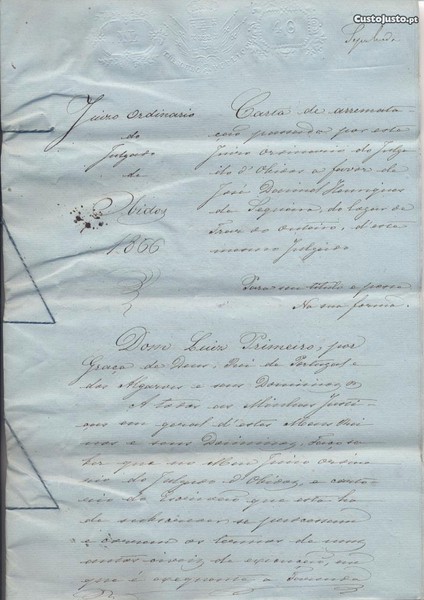 CustoJusto.pt
Juizo Ordinario
do
Julgado
de
Obidos
1866
Carta de arremata
ção passada por este
Juizo Ordinario do Julga
do d'Obidos a favor de
José Henriques
de do lugar da
d'este
mesmo Julgado
Para seu titulo e posse
Na sua forma.
Dom Luiz Primeiro, por
Graça de Deos, Rei de Portugal e
dos Algarves e seus Dominios, &
A todos os Minhas Justi-
ças em geral d'estes Meus Rei
nos e seus Dominios, Faço sa
ber que no Meu Juizo Ordina
rio do Julgado d'Obidos, e carto
rio do Escrivão que esta ha
de subscrever, se
e correram os termos de uns
autos civeis de execução, em
que é exequente a Fazenda